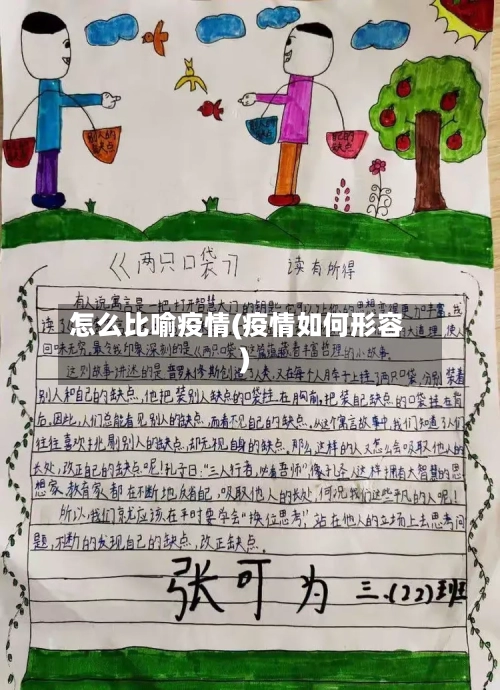 别人的缺点
自己的缺点
《两只口袋》 读有所得
有人说寓言是一把打开智慧大门的钥匙
怎么比喻疫情(疫情如何形容
)
回味无穷,最令我印象深刻的是《两只口袋》这篇蕴藏着丰富哲理的小故事。
这则故事讲述的是普罗米修斯创造了人类,又在每个人身上挂了两只口袋,分别装着
别人和自己的缺点,他把装别人缺点的口袋挂在胸前,把装自己缺点的口袋挂在背
后,因此,人们总能看见别人的缺点,而看不见自己的缺点,从这个寓言故事中,我们知道了人们
往往喜欢挑剔别人的缺点,却无视自身的缺点,那么,这样的人又怎么会吸取他人的
长处,改正自己的缺点呢!孔子曰:"三人行者,必有吾师"像孔圣人这样拥有大智慧的思
想家、教育家,都在不断地反省自己,吸取他人的长处,何况我们这些平凡的人呢!
所以,我们就应该在平时要学会"换位思考",站在他人的立场上去思考问
题,不断的发现自己的缺点,改正缺点。
张可为 三.(22)班